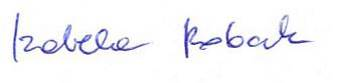 Izabela Robak